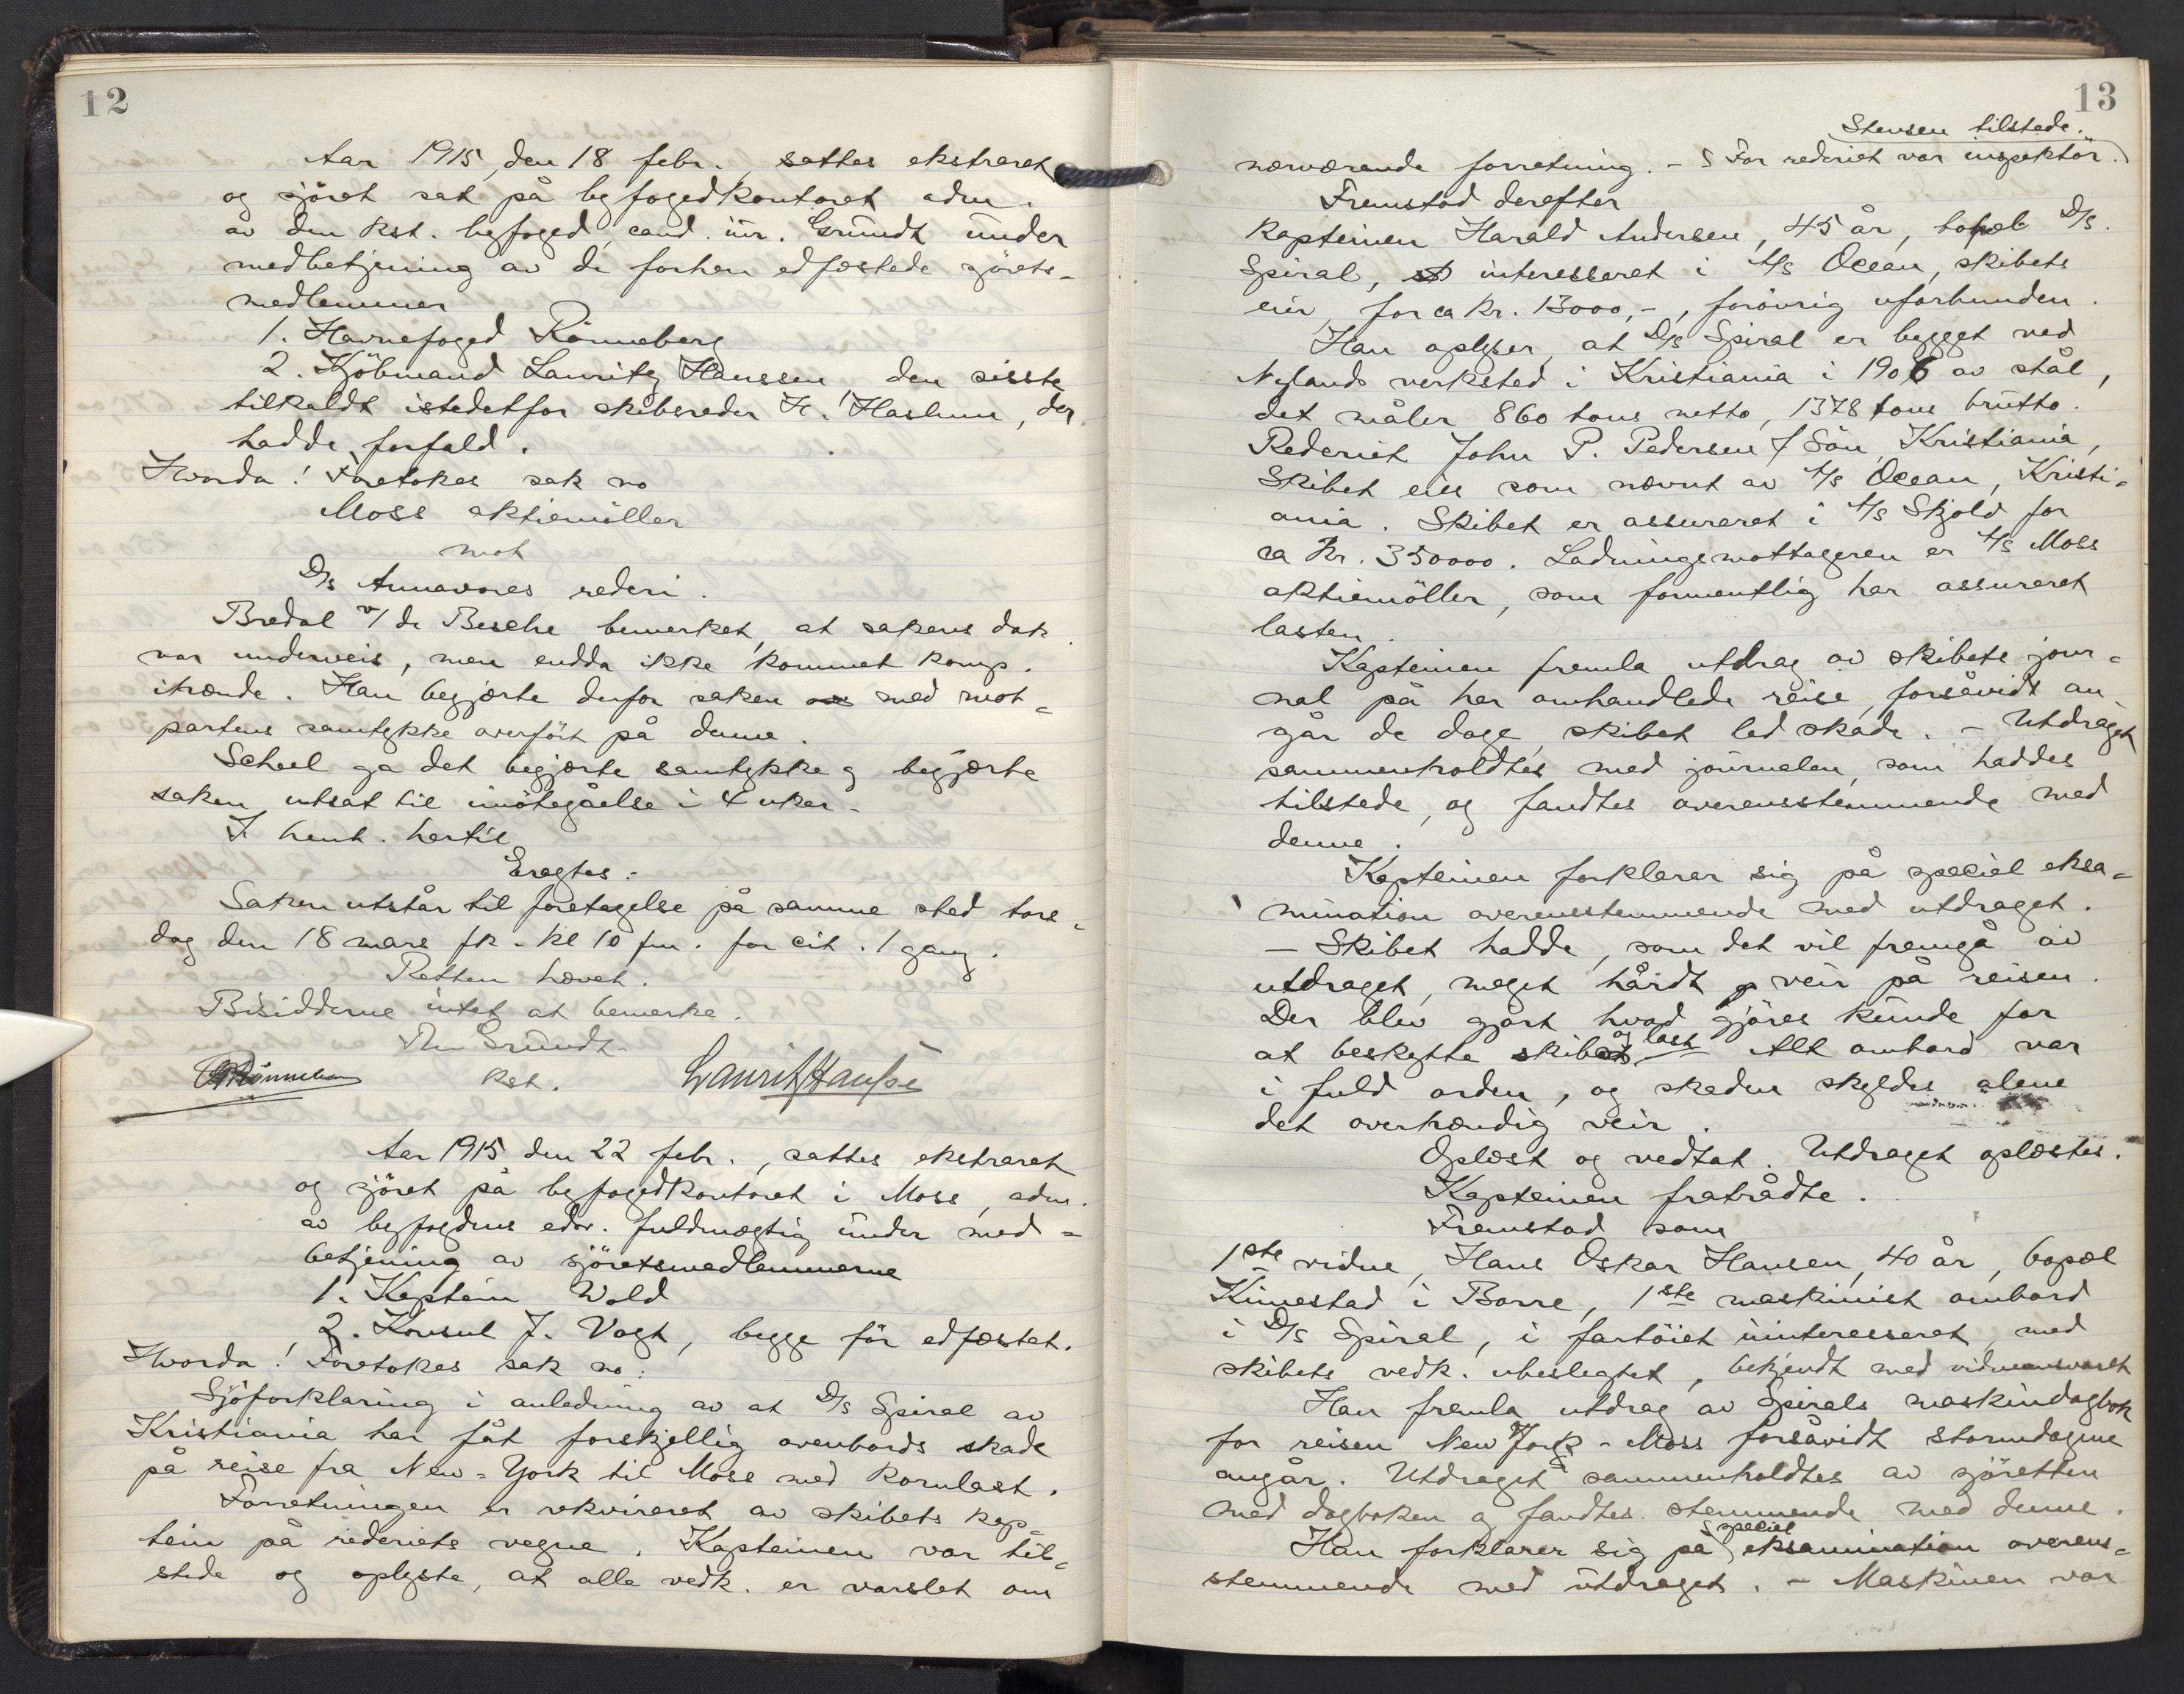 12
Aar 1915, den 18 febr., sattes ekstraret
og sjöret sat på byfogedkontoret adm.
av den kst. byfoged, cand. jur. Grundt under
medbetjening av de forhen edfæstede sjörets-
medlemmer
1. Havnefoged Rönneberg
2. Kjöbmand Lauritz Hanssen, den sisste
tilkaldt istedetfor skibsreder H. Haslum, der
hadde forfald.
Hvorda! Foretokes sak no
Moss aktiemöller
mot
D/s Annavores rederi.
Bredal v/ de Besche bemerket, at sakens dok.
var underveis, men endda ikke kommet komp.
ihænde. Han begjærte derfor saken med mot-
partens samtykke overfört på denne.
Scheel ga det begjærte samtykke og begjærte
saken utsat til imötegåelse i 4 uker.
I henh. hertil
Eragtes:
Saken utstår til foretagelse på samme sted tors-
dag den 18 mars fk. kl 10 fm. for cit. 1 gang.
Retten hævet.
Bisidderne intet at bemerke.
Grundt
Rönneberg kst. Lauritz Hanssen
Aar 1915 den 22 febr., sattes ekstraret
og sjöret på byfogedkontoret i Moss, adm.
av byfogdens edsv. fuldmægtig under med-
betjening av sjöretsmedlemmerne
1. Kaptein Wold
2. Konsul J. Vogt, begge för edfæstet.
Hvorda! Foretokes sak no:
Sjöforklaring i anledning av at D/s Spiral av
Kristiania har fåt forskjellig ovenbords skade
på reise fra New-York til Moss med kornlast.
Forretningen er rekvireret av skibets kap-
tein på rederiets vegne. Kapteinen var til-
stede og oplyste, at alle vedk. er varslet om
13
Stensen tilstede.
nærværende forretning. - For rederiet var inspektör
Fremstod derefter
kapteinen Harald Andersen, 45 år, bopæl D/s.
Spiral, interesseret i A/s Ocean, skibets
eier, for ca kr. 13000,-, forövrig uforbunden.
Han oplyser, at D/s Spiral er bygget ved
Nylands verksted i Kristiania i 1906 av stål,
det måler 860 tons netto, 1378 tons brutto.
Rederiet John P. Pedersen & Sön, Kristiania,
Skibet eies som nævnt av A/s Ocean, Kristi-
ania. Skibet er assureret i A/s Skjold for
ca Kr. 350000. Ladningsmottageren er A/s Moss
aktiemöller, som formentlig har assureret
lasten.
Kapteinen fremla utdrag av skibets jour-
nal på her omhandlede reise, forsåvidt an
går de dage, skibet led skade. - Utdraget
sammenholdtes med journalen, som haddes
tilstede, og fandtes overensstemmende med
denne.
Kapteinen forklarer sig på speciel eksa-
mination overensstemmende med utdraget.
- Skibet hadde, som det vil fremgå av
utdraget, meget hårdt veir på reisen.
Der blev gjort hvad gjöres kunde for
at beskytte skib og last. Alt ombord var
i fuld orden, og skaden skyldes alene
det overhændig veir.
Oplæst og vedtat. Utdraget oplæstes.
Kapteinen fratrådte.
Fremstod som
1ste vidne, Hans Oskar Hansen, 40 år, bopæl
Kinnestad i Borre, 1ste maskinist ombord
i D/s Spiral, i fartöiet uinteresseret, med
skibets vedk. ubeslegtet, bekjendt med vidneansvaret
Han fremla utdrag av Spirals maskindagbok
for reisen New York - Moss forsåvidt stormdagene
angår. Utdraget sammenholdtes av sjöretten
med dagboken og fandtes stemmende med denne.
Han forklarer sig på speciel eksamination overens-
stemmende med utdraget. - Maskinen var